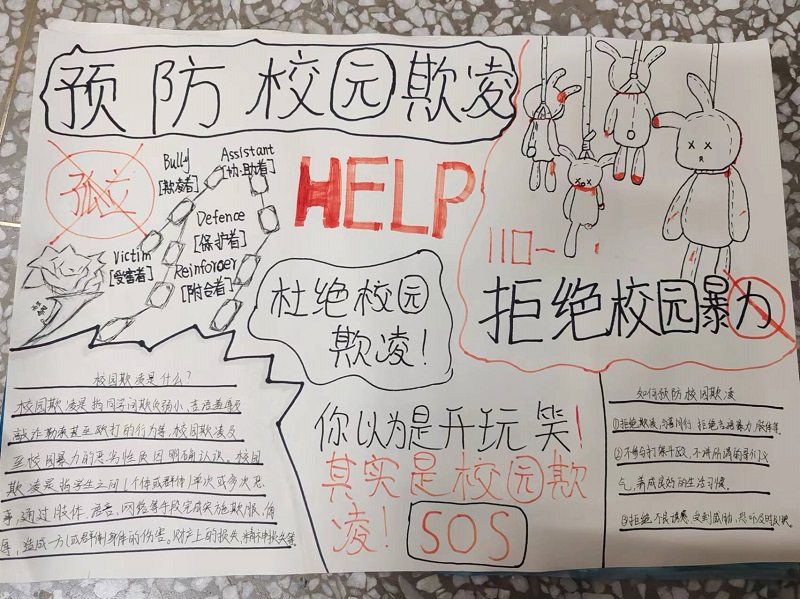 预防校园欺凌
孤立
Bully
[欺凌者]
Assistant
[协助者]
Defence
[保护者]
Victim
[受害者]
Reinforcer
[附合者]
HELP
110
拒绝校园暴力
杜绝校园
欺凌!
你以为是开玩笑!
其实是校园欺
凌!
SOS
校园欺凌是什么?
校园欺凌是指同学间欺负弱小、言语羞辱及
敲诈勒索甚至殴打的行为等,校园欺凌及
至校园暴力的恶劣性质因明确认识。校园
欺凌是指学生之间(个体或群体)单次或多次恶
通过肢体、语言、网络等手段
造成一方(或群体)身体的伤害。财产上的损失、精神损失等
如何预防校园欺凌
①拒绝欺凌,与善同行,拒绝言语暴力、肢体等
②不参与打架斗殴,不讲所谓的哥们义
气,养成良好的生活习惯。
③拒绝不良诱惑,受到威胁,恐吓及时反映